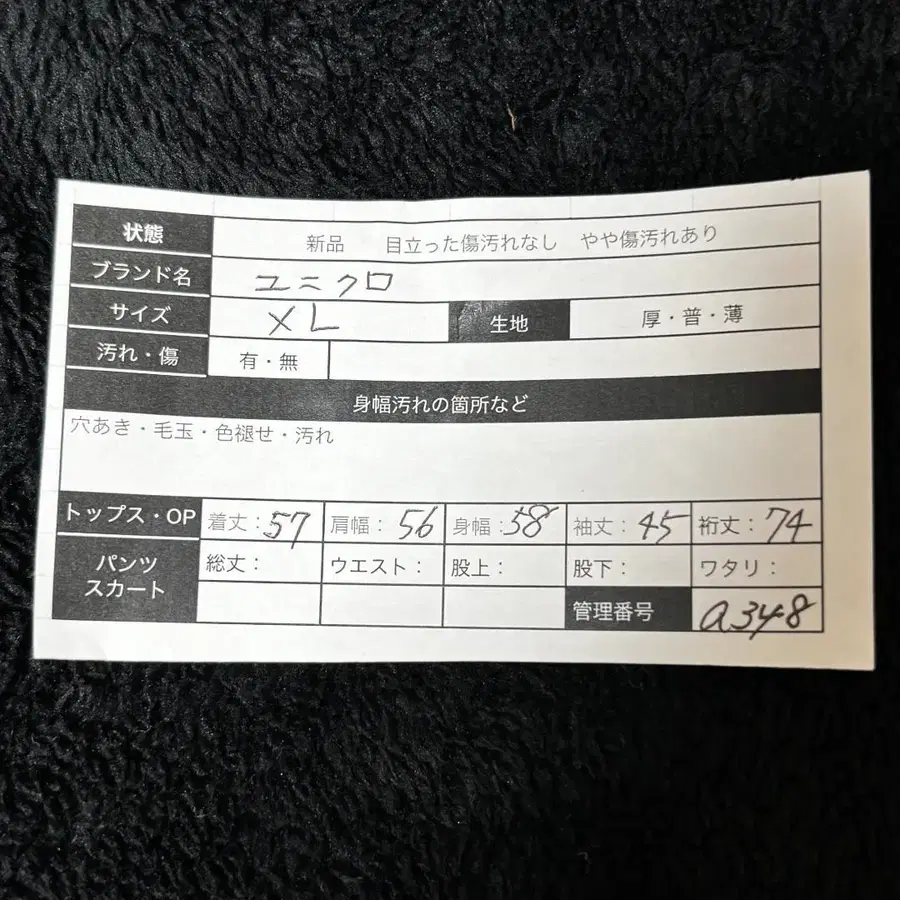 状態 新品 目立った傷汚れなし やや傷汚れあり
ブランド名 ユニクロ
サイズ XL 生地 厚・普・薄
汚れ・傷 有・無
身幅汚れの箇所など
穴あき・毛玉・色褪せ・汚れ
トップス・OP 着丈：57 肩幅：56 身幅：58 袖丈：45 裄丈：74
パンツ スカート 総丈： ウエスト： 股上： 股下： ワタリ：
管理番号 a348